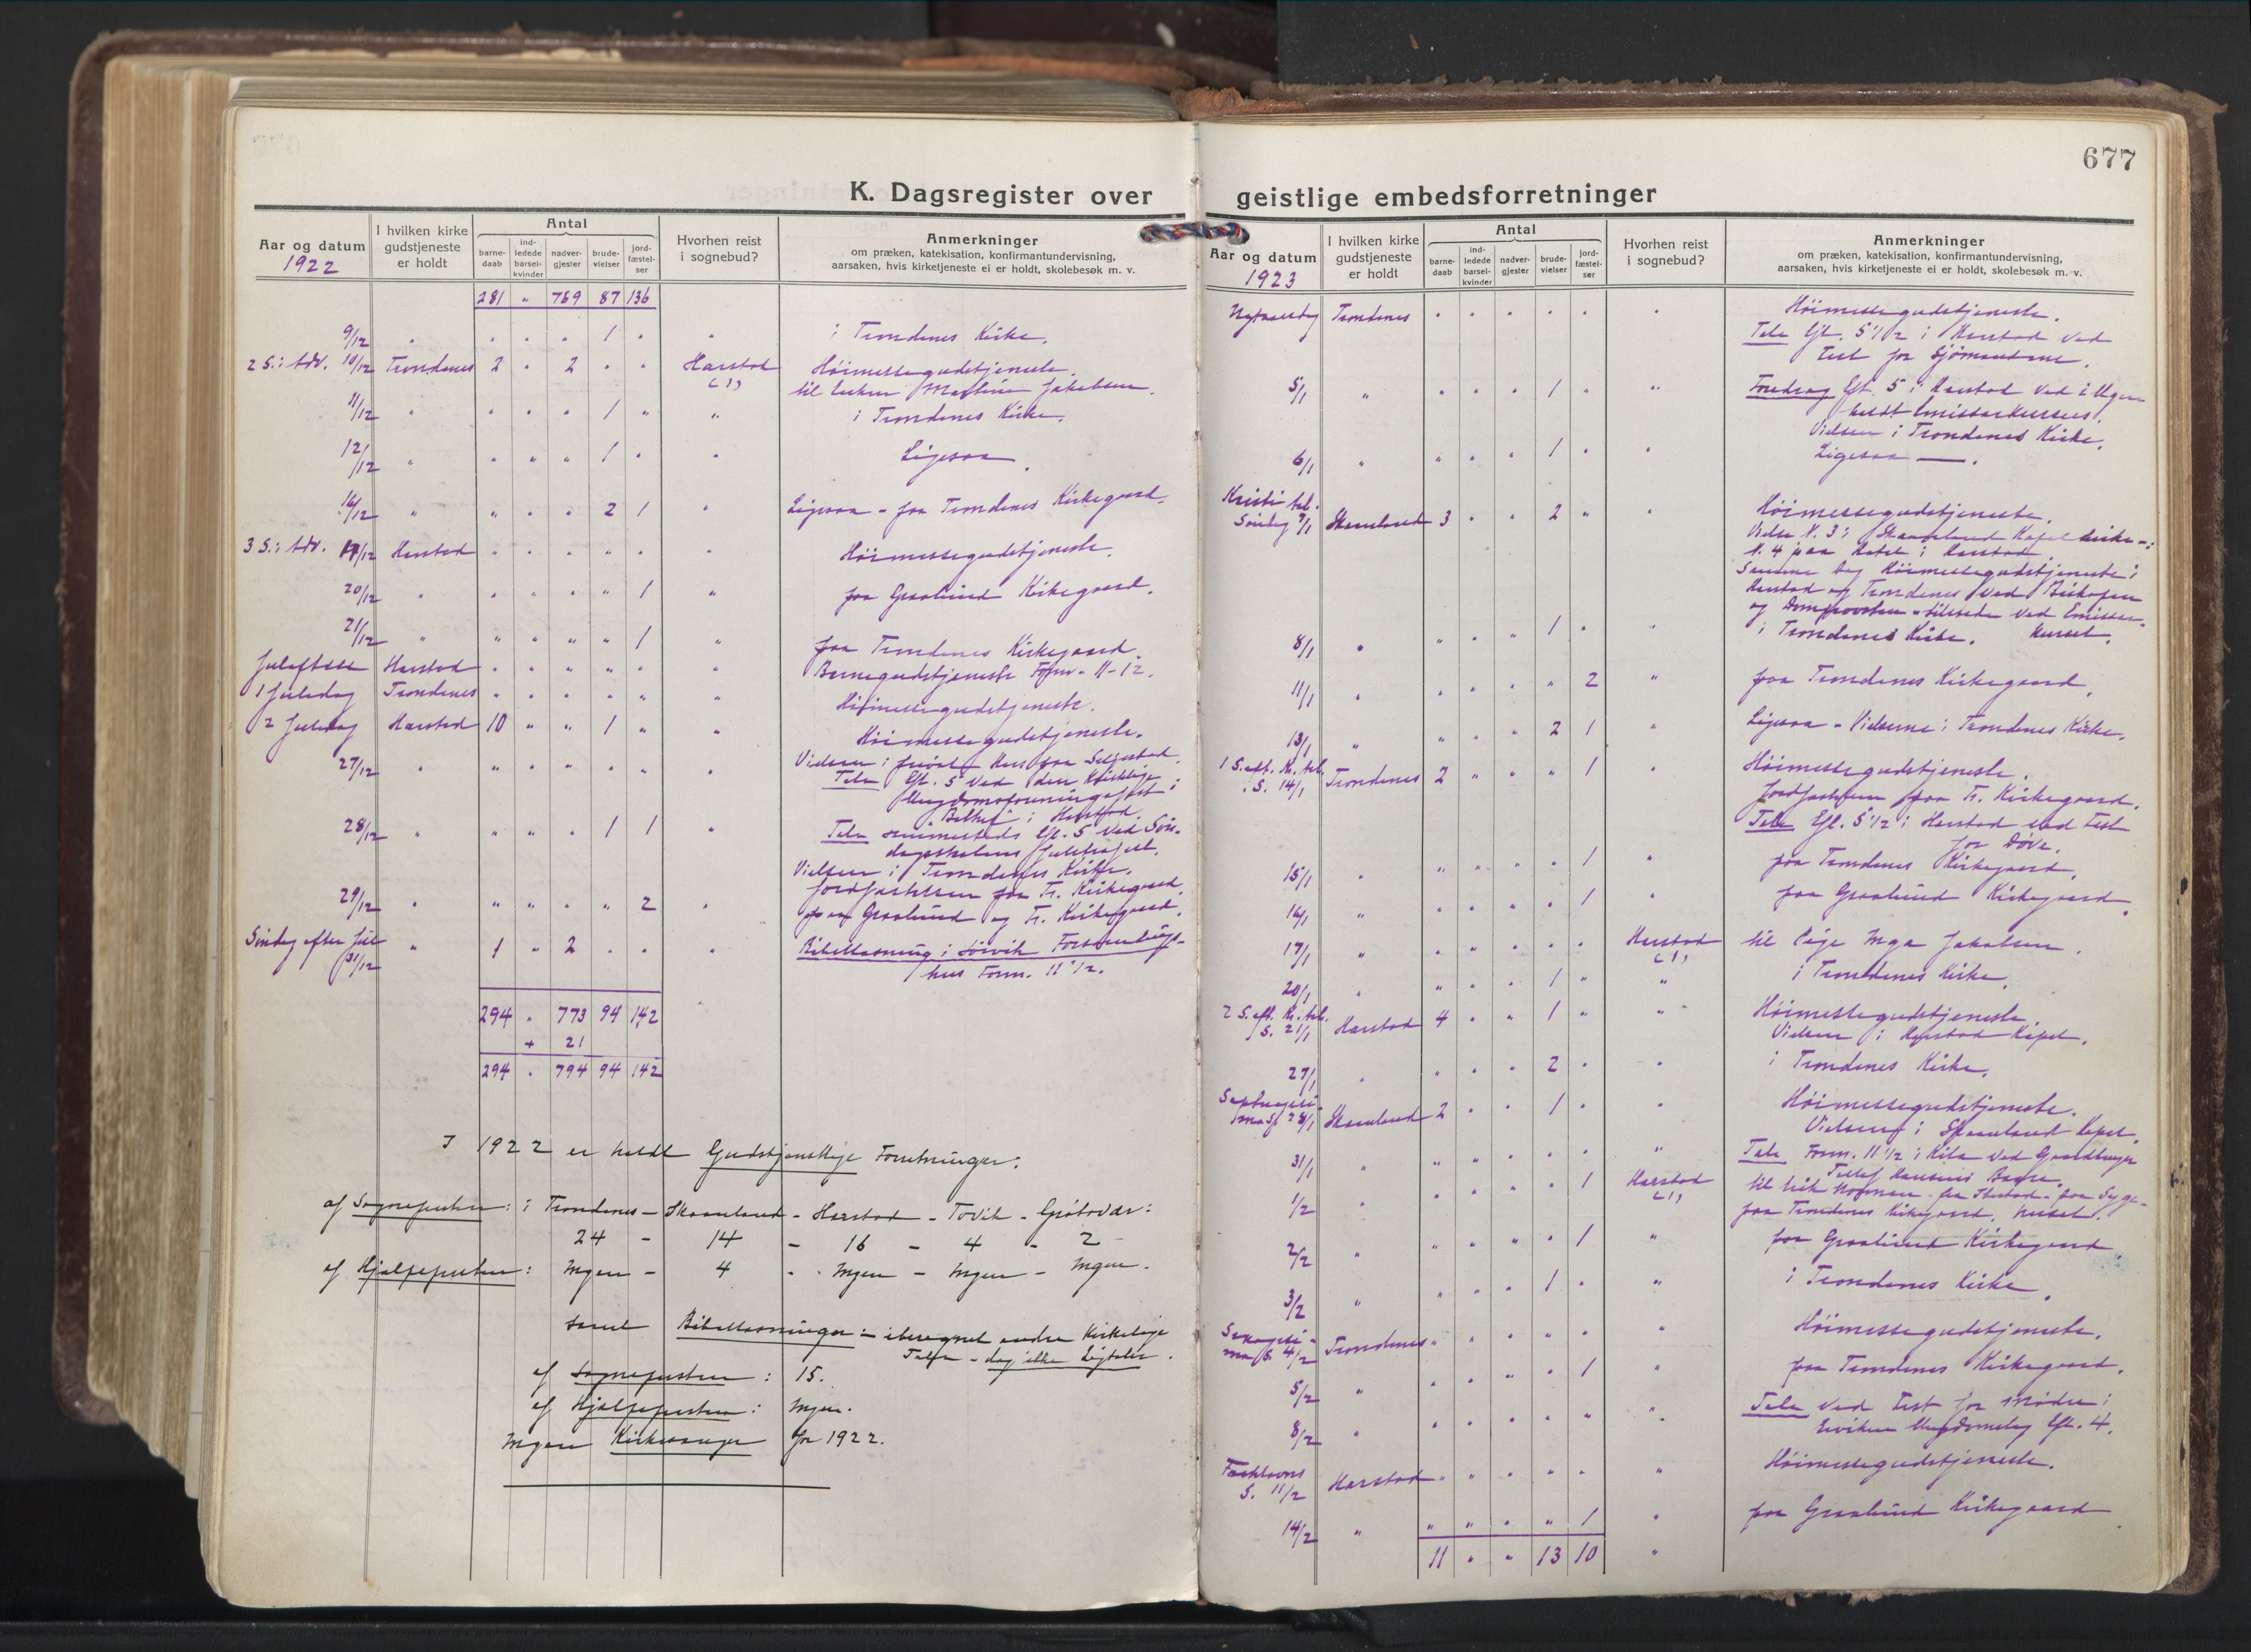 677
K. Dagsregister over geistlige embedsforretninger
Aar og datum 1922
I hvilken kirke gudstjeneste er holdt
Antal
barne-daab
ind-ledede barsel-kvinder
nadver-gjester
brude-vielser
jord-fæstel-ser
Hvorhen reist i sognebud?
Anmerkninger
om præken, katekisation, konfirmantundervisning,
aarsaken, hvis kirketjeneste ei er holdt, skolebesøk m. v.
281 " 769 87 136
9/12 " " " " 1 " " i Trondenes Kirke.
2 S. i Adv. 10/12 Trondenes 2 " 2 " " Harstad (1) Høimessegudstjeneste.
til Martin Jakobsen.
11/12 " " " " 1 " " i Trondenes Kirke.
12/12 " " " " 1 " " Ligesaa.
16/12 " " " " 2 1 " Ligesaa - paa Trondenes Kirkegaard.
3 S. i Adv. 17/12 Harstad " " " " " " Høimessegudstjeneste.
20/12 " " " " " 1 " paa Graalund Kirkegaard.
21/12 " " " " " 1 " paa Trondenes Kirkegaard.
Juleaften Harstad " " " " " " Barnegudstjeneste Form. 11-12.
1 Juledag Trondenes " " " " " " Høimessegudstjeneste.
2 Juledag Harstad 10 " " 1 " " Høimessegudstjeneste.
Vielsen i privat Hus paa Seljestad.
27/12 " " " " " " " Tale Eft. 5 ved den Kristelige
Ungdomsforenings fest i
Bethel i Harstad.
28/12 " " " " 1 1 " Tale sammesteds Eft. 5 ved Søn-
dagsskolens Juletræfest.
Vielsen i Trondenes Kirke.
Jordfæstelsen paa Tr. Kirkegaard.
29/12 " " " " " 2 " paa Graalund og Tr. Kirkegaard.
Søndag efter Jul 31/12 " 1 " 2 " " " Bibellæsning i Sørvik Forsamlings-
hus Form. 11 1/2.
294 " 773 94 142
+ 21
294 " 794 94 142
I 1922 er holdt Gudstjenstlige Forretninger:
af Sognepresten: i Trondenes - Skaanland - Harstad - Tovik - Grøtavær:
24 - 14 - 16 - 4 - 2
af Hjælpepresten: Ingen - 4 - Ingen - Ingen - Ingen.
samt Bibellæsninger - iberegnet andre Kirkelige
Taler - dog ikke Ligtaler.
af Sognepresten: 15.
af Hjælpepresten: Ingen.
Ingen Kirkesanger for 1922.
Aar og datum 1923
I hvilken kirke gudstjeneste er holdt
Antal
barne-daab
ind-ledede barsel-kvinder
nadver-gjester
brude-vielser
jord-fæstel-ser
Hvorhen reist i sognebud?
Anmerkninger
om præken, katekisation, konfirmantundervisning,
aarsaken, hvis kirketjeneste ei er holdt, skolebesøk m. v.
Nytaarsdag Trondenes " " " " " " Høimessegudstjeneste.
Tale Eft. 5 1/2 i Harstad ved
Fest for Sjømændene.
5/1 " " " " 1 " " Foredrag Eft. 5 i Harstad ved
holdt Emissærkursus.
Vielsen i Trondenes Kirke.
6/1 " " " " 1 " " Ligesaa —.
Kristi aab. Søndag 7/1 Skaanland 3 " " 2 " " Høimessegudstjeneste.
Vielse N. 3 i Skaanland Kapel
N. 4 paa Hotel i Harstad.
Samme Dag Høimessegudstjeneste i
Harstad og Trondenes ved Biskopen
og Domprovsten - tilstede ved Emissær-
kurset.
8/1 " " " " 1 " " i Trondenes Kirke.
11/1 " " " " " 2 " paa Trondenes Kirkegaard.
13/1 " " " " 2 1 " Ligesaa - Vielserne i Trondenes Kirke.
1 S. eft. Kr. aab. S. 14/1 Trondenes 2 " " " 1 " Høimessegudstjeneste.
Jordfæstelsen paa Tr. Kirkegaard.
Tale Eft. 5 1/2 i Harstad ved Fest
for Døve.
15/1 " " " " " 1 " paa Trondenes Kirkegaard.
16/1 " " " " " 1 " paa Graalund Kirkegaard.
17/1 " " " " " " Harstad (1) til Pige Inga Jakobsen.
20/1 " " " " 1 " " i Trondenes Kirke.
2 S. eft. Kr. aab. S. 21/1 Harstad 4 " " 1 " " Høimessegudstjeneste.
Vielsen i Harstad Kapel.
27/1 " " " " 2 " " i Trondenes Kirke.
Septuagesi-ma S. 28/1 Skaanland 2 " " 1 " " Høimessegudstjeneste.
Vielsen i Skaanland Kapel.
31/1 " " " " " " " Tale Form. 11 1/2 i Kila ved
Hansens Baare.
1/2 " " " " " 1 Harstad (1) til fra Ibestad - paa Syge-
huset.
paa Trondenes Kirkegaard.
2/2 " " " " " 1 " paa Graalund Kirkegaard.
3/2 " " " " 1 " " i Trondenes Kirke.
Sexagesi-ma S. 4/2 Trondenes " " " " " " Høimessegudstjeneste.
5/2 " " " " " 1 " paa Trondenes Kirkegaard.
8/2 " " " " " " " Tale ved Fest for Mødre i
Ungdomslag Eft. 4.
Fastelavns S. 11/2 Harstad " " " " " " Høimessegudstjeneste.
14/2 " " " " " 1 " paa Graalund Kirkegaard.
11 " " 13 10 "